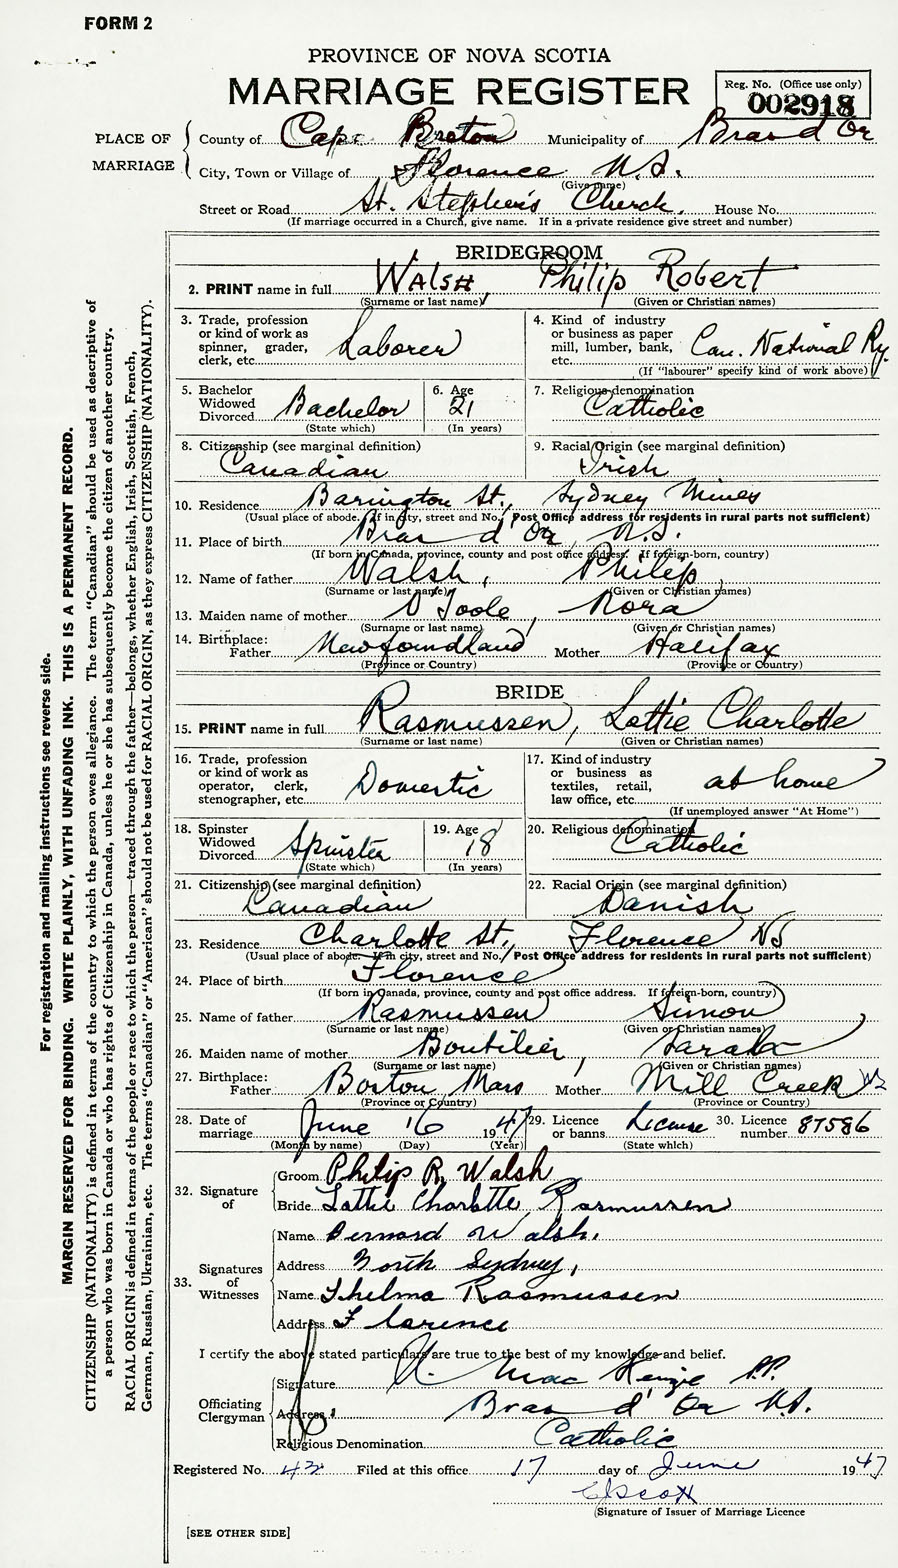 FORM 2
PROVINCE OF NOVA SCOTIA
MARRIAGE REGISTER
Reg. No. (Office use only)
002918
PLACE OF MARRIAGE
County of Cape Breton Municipality of Bras d'Or
City, Town or Village of Florence N.S.
(Give name)
Street or Road St. Stephen's Church. House No.
(If marriage occurred in a Church, give name. If in a private residence give street and number)
BRIDEGROOM
2. PRINT name in full WALSH, Philip Robert
(Surname or last name) (Given or Christian names)
3. Trade, profession or kind of work as spinner, grader, clerk, etc. Laborer
4. Kind of industry or business as paper mill, lumber, bank, etc. Can. National Ry.
(If "labourer" specify kind of work above)
5. Bachelor Widowed Divorced Bachelor
(State which)
6. Age 21
(In years)
7. Religious denomination Catholic
8. Citizenship (see marginal definition) Canadian
9. Racial Origin (see marginal definition) Irish
10. Residence Barington St., Sydney Mines
(Usual place of abode. If in city, street and No. Post Office address for residents in rural parts not sufficient)
11. Place of birth Bras d'Or, N.S.
(If born in Canada, province, county and post office address. If foreign-born, country)
12. Name of father Walsh, Philip
(Surname or last name) (Given or Christian names)
13. Maiden name of mother O'Toole, Nora
(Surname or last name) (Given or Christian names)
14. Birthplace: Father Newfoundland Mother Halifax
(Province or Country) (Province or Country)
BRIDE
15. PRINT name in full Rasmussen, Lottie Charlotte
(Surname or last name) (Given or Christian names)
16. Trade, profession or kind of work as operator, clerk, stenographer, etc. Domestic
17. Kind of industry or business as textiles, retail, law office, etc. at home
(If unemployed answer "At Home")
18. Spinster Widowed Divorced Spinster
(State which)
19. Age 18
(In years)
20. Religious denomination Catholic
21. Citizenship (see marginal definition) Canadian
22. Racial Origin (see marginal definition) Danish
23. Residence Charlotte St., Florence NS
(Usual place of abode. If in city, street and No. Post Office address for residents in rural parts not sufficient)
24. Place of birth Florence
(If born in Canada, province, county and post office address. If foreign-born, country)
25. Name of father Rasmussen Simon
(Surname or last name) (Given or Christian names)
26. Maiden name of mother Boutilier, Sarah
(Surname or last name) (Given or Christian names)
27. Birthplace: Father Boston Mass Mother Mill Creek
(Province or Country) (Province or Country)
28. Date of marriage June 16 1947
(Month by name) (Day) (Year)
29. Licence or banns License
(State which)
30. Licence number 87586
32. Signature of
Groom Philip R. Walsh
Bride Lottie Charlotte Rasmussen
33. Signatures of Witnesses
Name Bernard Walsh.
Address North Sydney,
Name Thelma Rasmussen
Address Florence
I certify the above stated particulars are true to the best of my knowledge and belief.
Officiating Clergyman
Signature Mac Kenzie P.P.
Address Bras d'Or N.S.
Religious Denomination Catholic
Registered No. 43 Filed at this office 17 day of June 1947
CJ Scott
(Signature of Issuer of Marriage Licence
[SEE OTHER SIDE]
For registration and mailing instructions see reverse side.
MARGIN RESERVED FOR BINDING. WRITE PLAINLY, WITH UNFADING INK. THIS IS A PERMANENT RECORD.
CITIZENSHIP (NATIONALITY) is defined in terms of the country to which the person owes allegiance. The term "Canadian" should be used as descriptive of
a person who was born in Canada or who has rights of Citizenship in Canada, unless he or she has subsequently become the citizen of another country.
RACIAL ORIGIN is defined in terms of the people or race to which the person—traced through the father—belongs, whether English, Irish, Scottish, French,
German, Russian, Ukrainian, etc. The terms "Canadian" or "American" should not be used for RACIAL ORIGIN, as they express CITIZENSHIP (NATIONALITY).